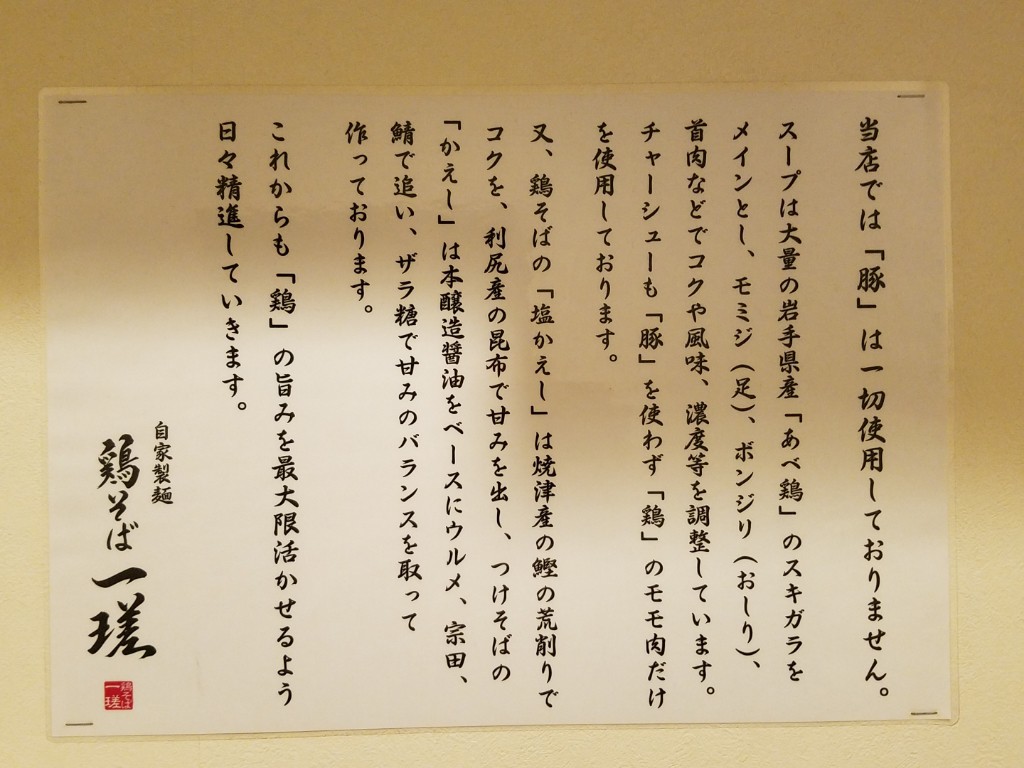 当店では「豚」は一切使用しておりません。
スープは大量の岩手県産「あべ鶏」のスキガラを
メインとし、モミジ(足)、ボンジリ(おしり)、
首肉などでコクや風味、濃度等を調整しています。
チャーシューも「豚」を使わず「鶏」のモモ肉だけ
を使用しております。
又、鶏そばの「塩かえし」は焼津産の鰹の荒削りで
コクを、利尻産の昆布で甘みを出し、つけそばの
「かえし」は本醸造醤油をベースにウルメ、宗田、
鯖で追い、ザラ糖で甘みのバランスを取って
作っております。
これからも「鶏」の旨みを最大限活かせるよう
日々精進していきます。
自家製麺
鶏そば一瑳
鶏そば
一瑳